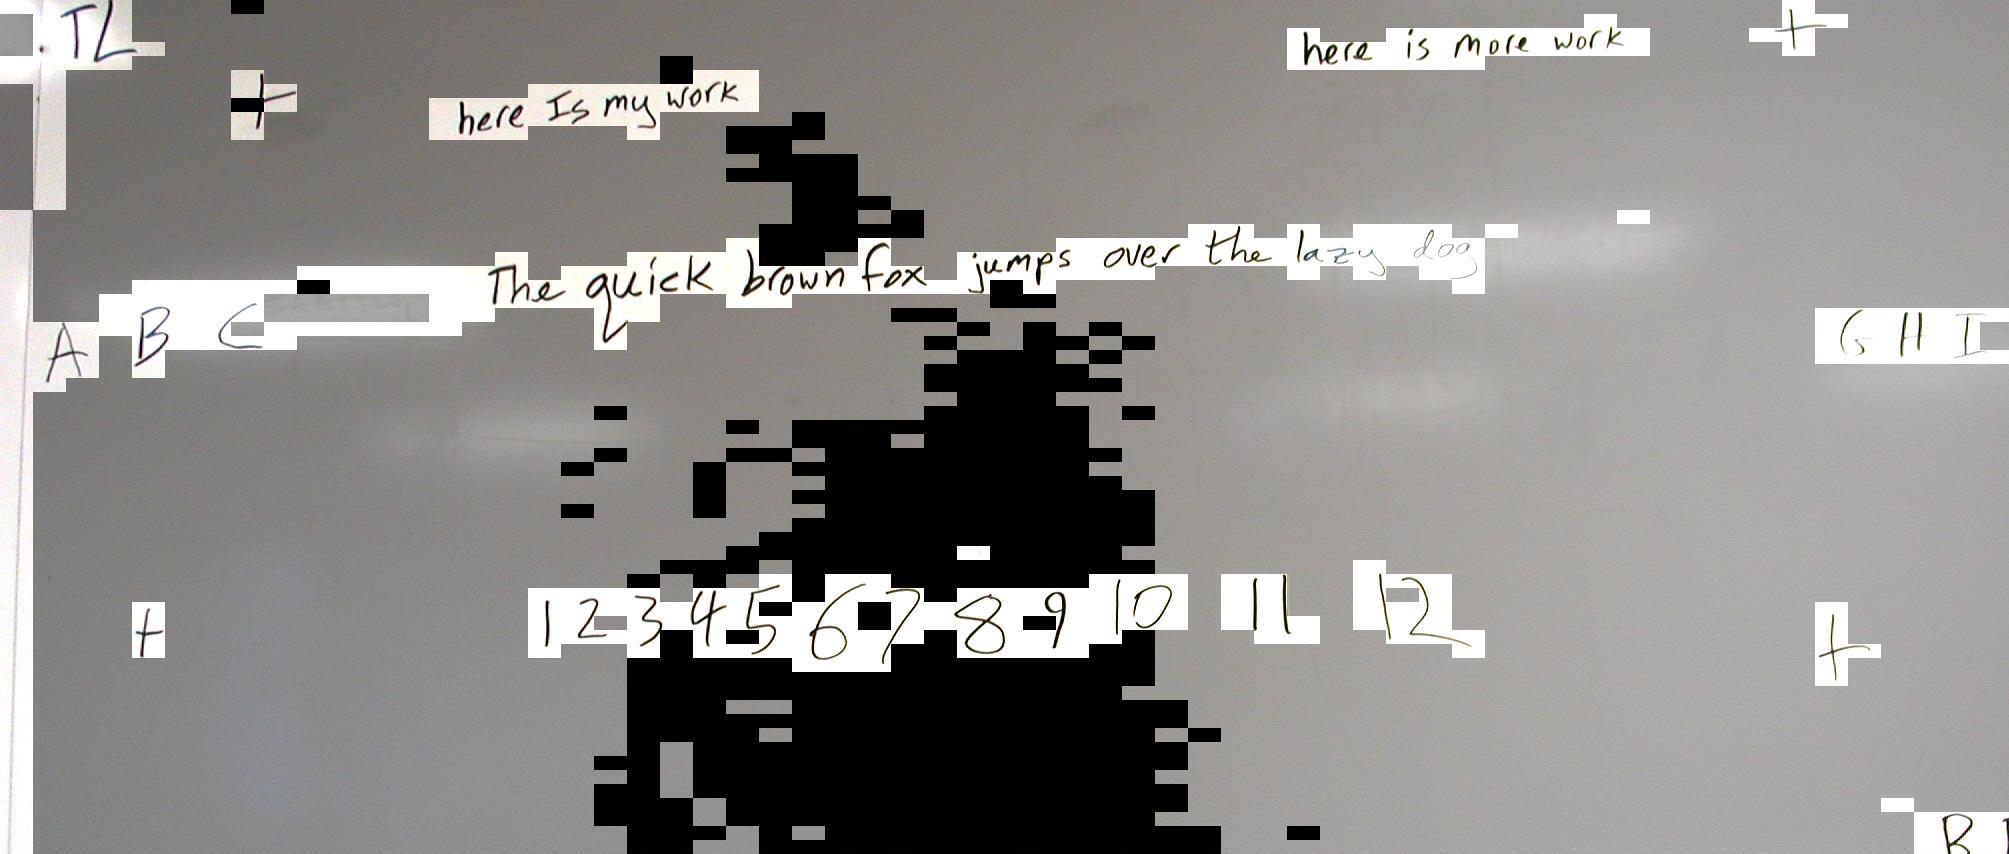 .TL
here is more work
here Is my work
The quick brown fox jumps over the lazy dog
A B C
G H I
1 2 3 4 5 6 7 8 9 10 11 12
B